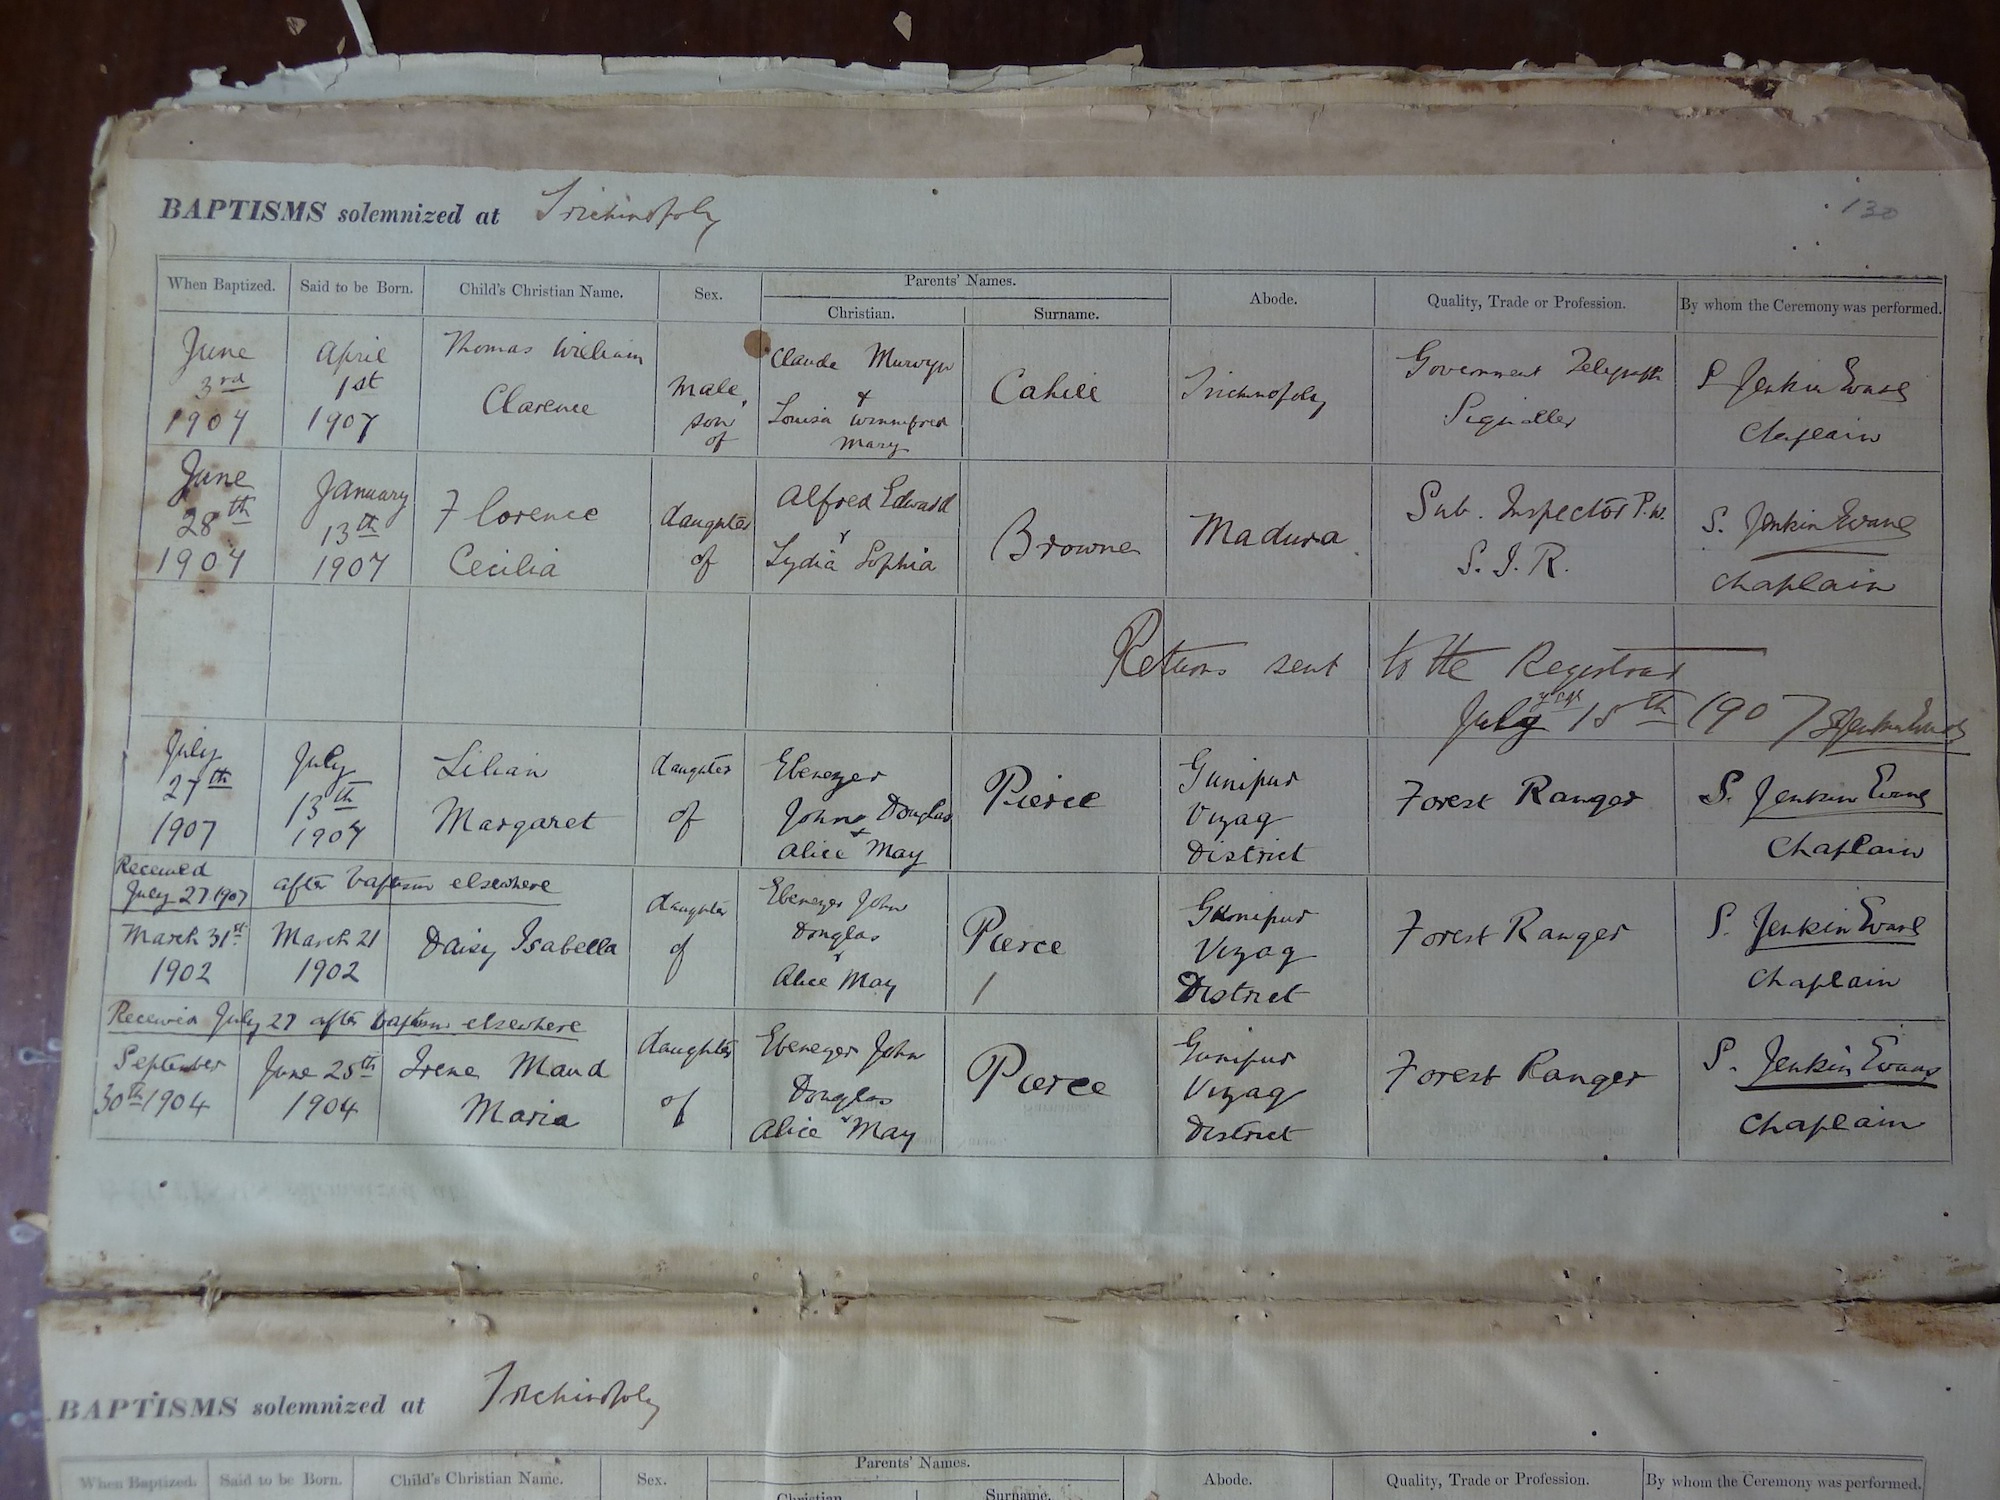 BAPTISMS solemnized at Trichinopoly
130
When Baptized. Said to be Born. Child's Christian Name. Sex. Parents' Names. Abode. Quality, Trade or Profession. By whom the Ceremony was performed.
Christian. Surname.
June 3rd 1907
April 1st 1907
Thomas William Clarence
Male, son of
Claude Mervyn & Louisa Winnifred Mary
Cahill
Trichinopoly
Government Telegraph Signaller
S. Jenkin Evans Chaplain
June 28th 1907
January 13th 1907
Florence Cecilia
daughter of
Alfred Edward & Lydia Sophia
Browne
Madura
Sub. Inspector P.W. S.I.R.
S. Jenkin Evans Chaplain
Returns sent to the Registrar
July 15th 1907 S Jenkin Evans
July 27th 1907
July 13th 1907
Lilian Margaret
daughter of
Ebenezer John Douglas & Alice May
Pierce
Gunipur Vizag District
Forest Ranger
S. Jenkin Evans Chaplain
Received July 27 1907 after baptism elsewhere
March 31st 1902
March 21 1902
Daisy Isabella
daughter of
Ebenezer John Douglas & Alice May
Pierce
Gunipur Vizag District
Forest Ranger
S. Jenkin Evans Chaplain
Received July 27 after baptism elsewhere
September 30th 1904
June 25th 1904
Irene Maud Maria
daughter of
Ebenezer John Douglas & Alice May
Pierce
Gunipur Vizag District
Forest Ranger
S. Jenkin Evans Chaplain
BAPTISMS solemnized at Trichinopoly
When Baptized. Said to be Born. Child's Christian Name. Sex. Parents' Names. Abode. Quality, Trade or Profession. By whom the Ceremony was performed.
Christian. Surname.